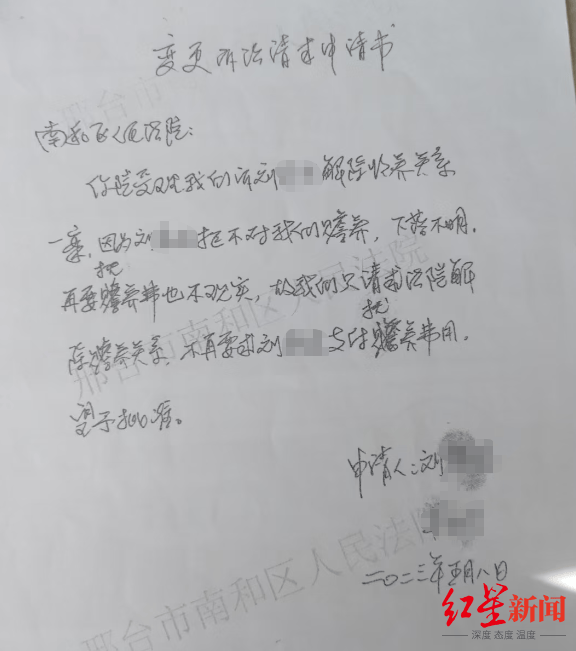 变更诉讼请求申请书
南和区人民法院:
你院受理我们诉刘 解除收养关系
一案,因为刘 拒不对我们赡养,下落不明,
再要抚养费也不现实,故我们只请求法院解
除赡养关系,不再要求刘 支付抚养费用。
望予批准。
申请人:刘
二〇二三年五月八日
邢台市南和区人民法院
邢台市南和区人民法院
红星新闻
深度 态度 温度